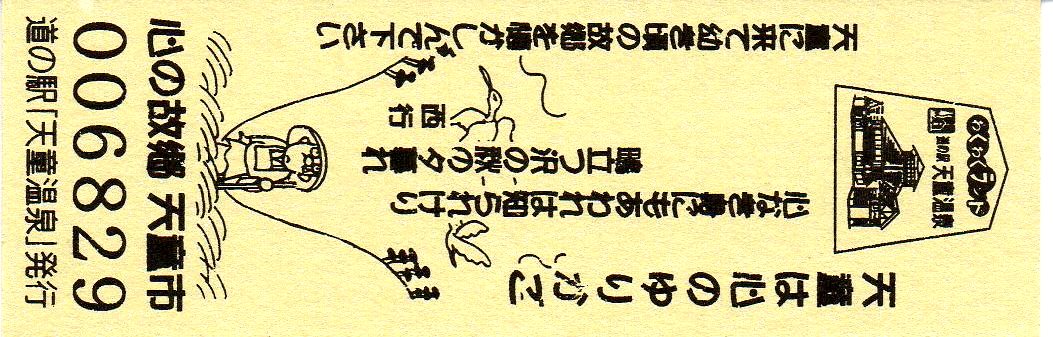 わくわくランド
道の駅 天童温泉
天童は心のゆりかご
心なき身にもあわれは知られけり
鴫立つ沢の秋の夕暮れ
西行
天童に来て幼き頃の故郷を懐かしんで下さい
心の故郷 天童市
006829
道の駅「天童温泉」発行